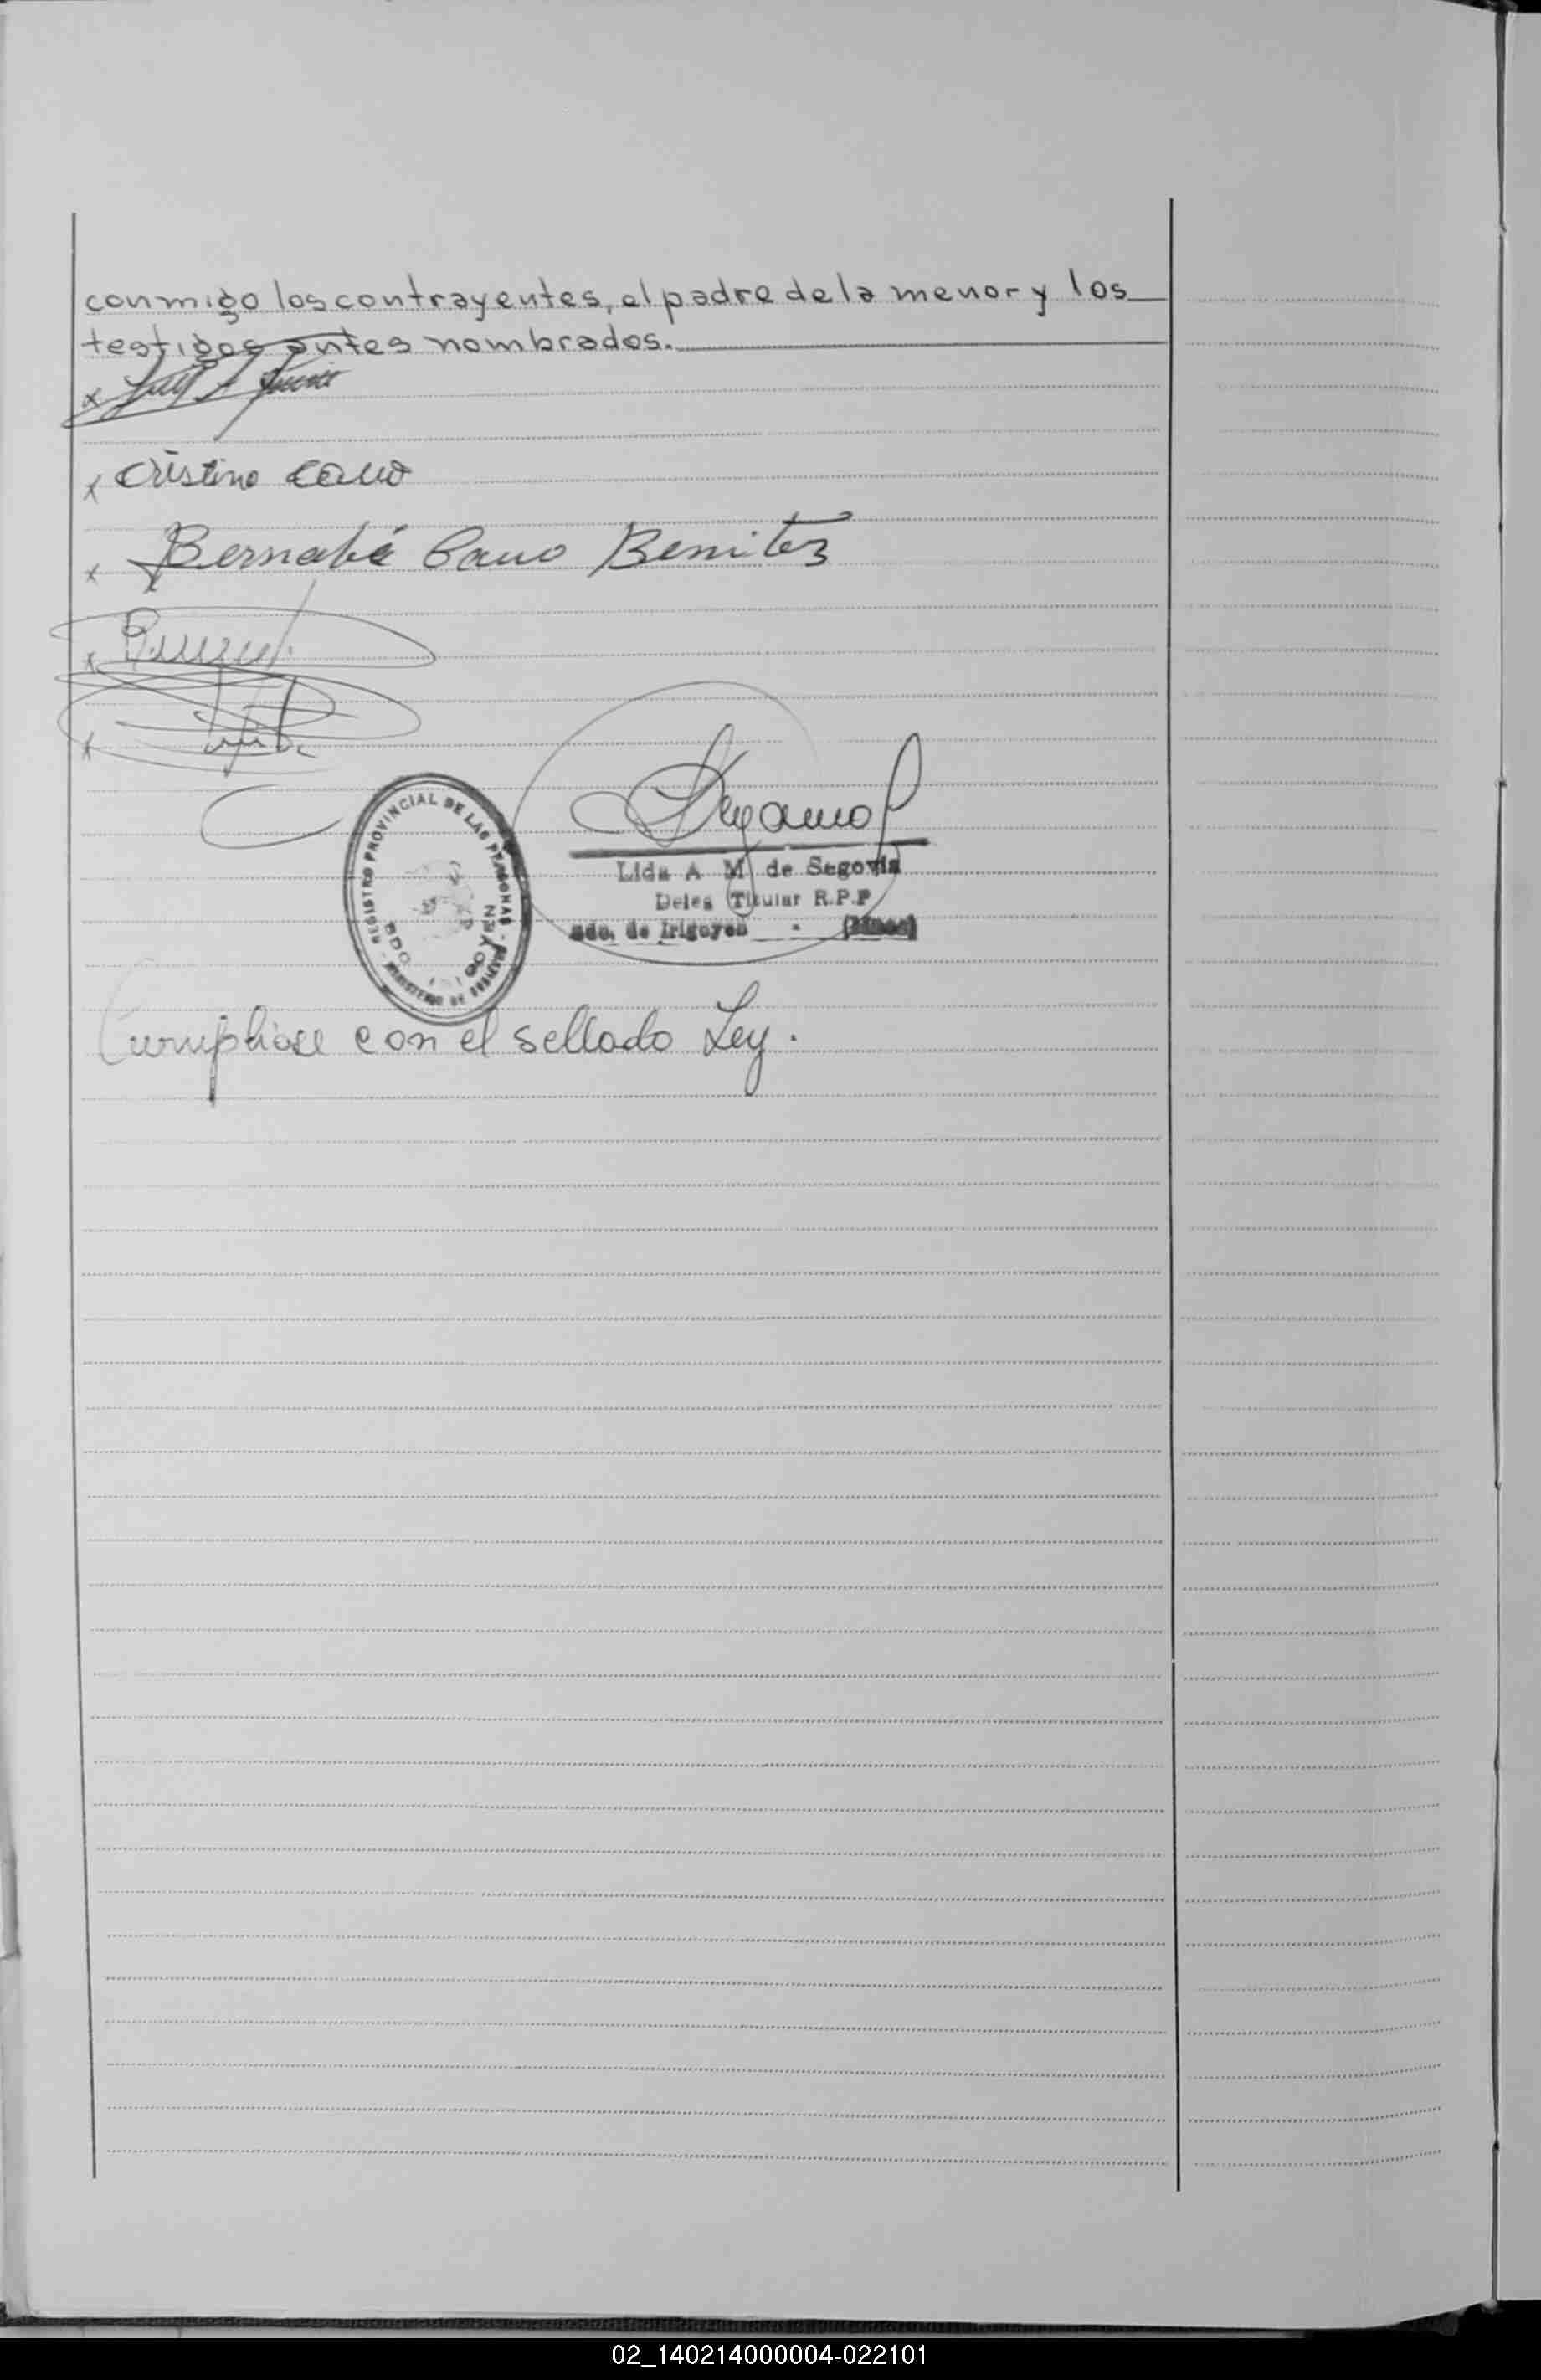 conmigo los contrayentes, el padre de la menor y los
testigos antes nombrados.
x
x Cristino Cano
x Bernabé Cano Benitez
x
x
REGISTRO PROVINCIAL DE LAS PERSONAS - MINISTERIO DE GOBIERNO
BDO
Lida A M de Segovia
Deleg Titular R.P.P
Bdo. de Irigoyen - (Mnes)
Cumpliose con el sellado Ley.
02_140214000004-022101